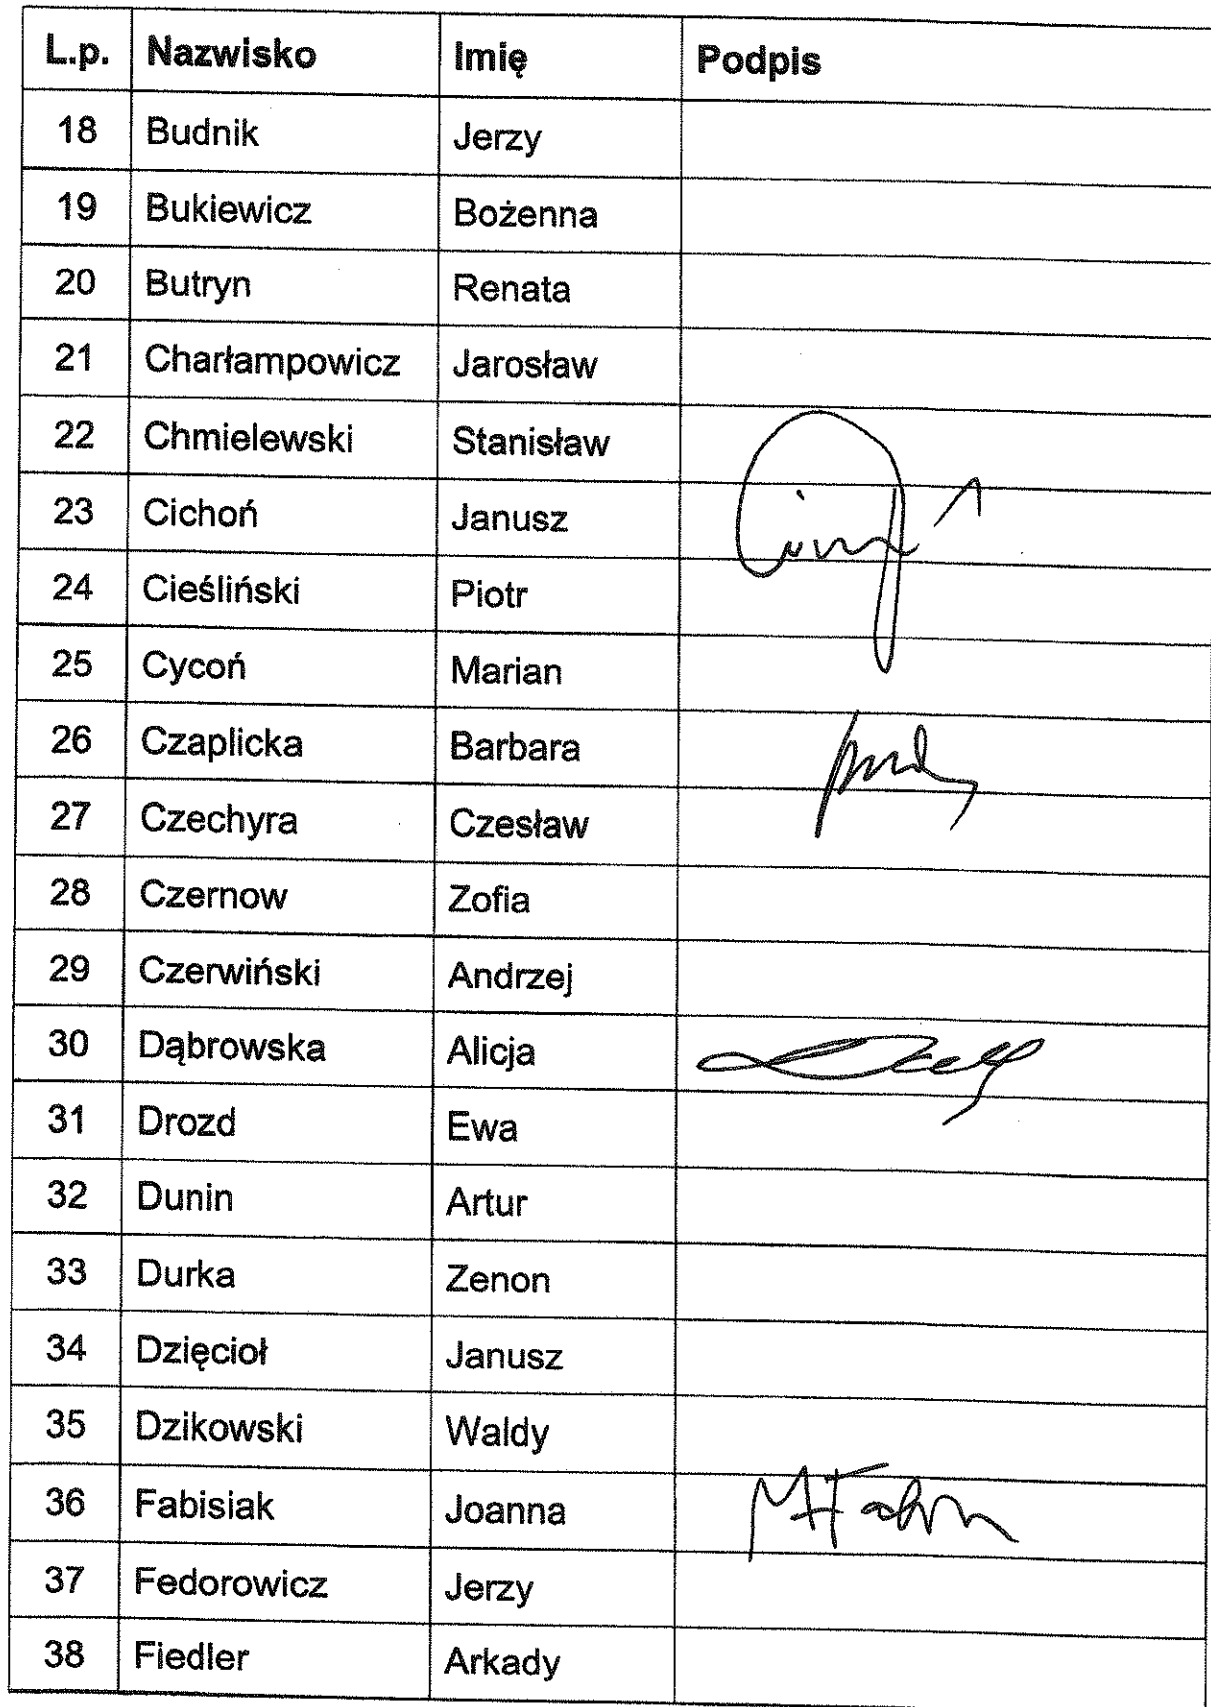 L.p. Nazwisko Imię Podpis
18 Budnik Jerzy
19 Bukiewicz Bożenna
20 Butryn Renata
21 Charłampowicz Jarosław
22 Chmielewski Stanisław
23 Cichoń Janusz
24 Cieśliński Piotr
25 Cycoń Marian
26 Czaplicka Barbara
27 Czechyra Czesław
28 Czernow Zofia
29 Czerwiński Andrzej
30 Dąbrowska Alicja
31 Drozd Ewa
32 Dunin Artur
33 Durka Zenon
34 Dzięcioł Janusz
35 Dzikowski Waldy
36 Fabisiak Joanna
37 Fedorowicz Jerzy
38 Fiedler Arkady